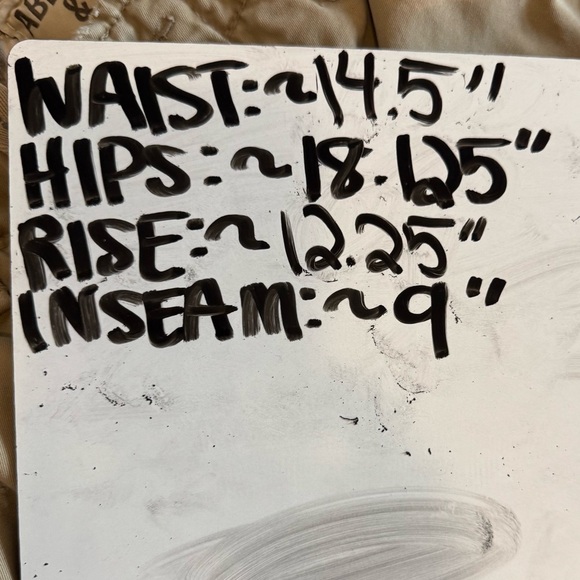 AB
&
WAIST: ~14.5"
HIPS: ~18.125"
RISE: ~12.25"
INSEAM: ~9"